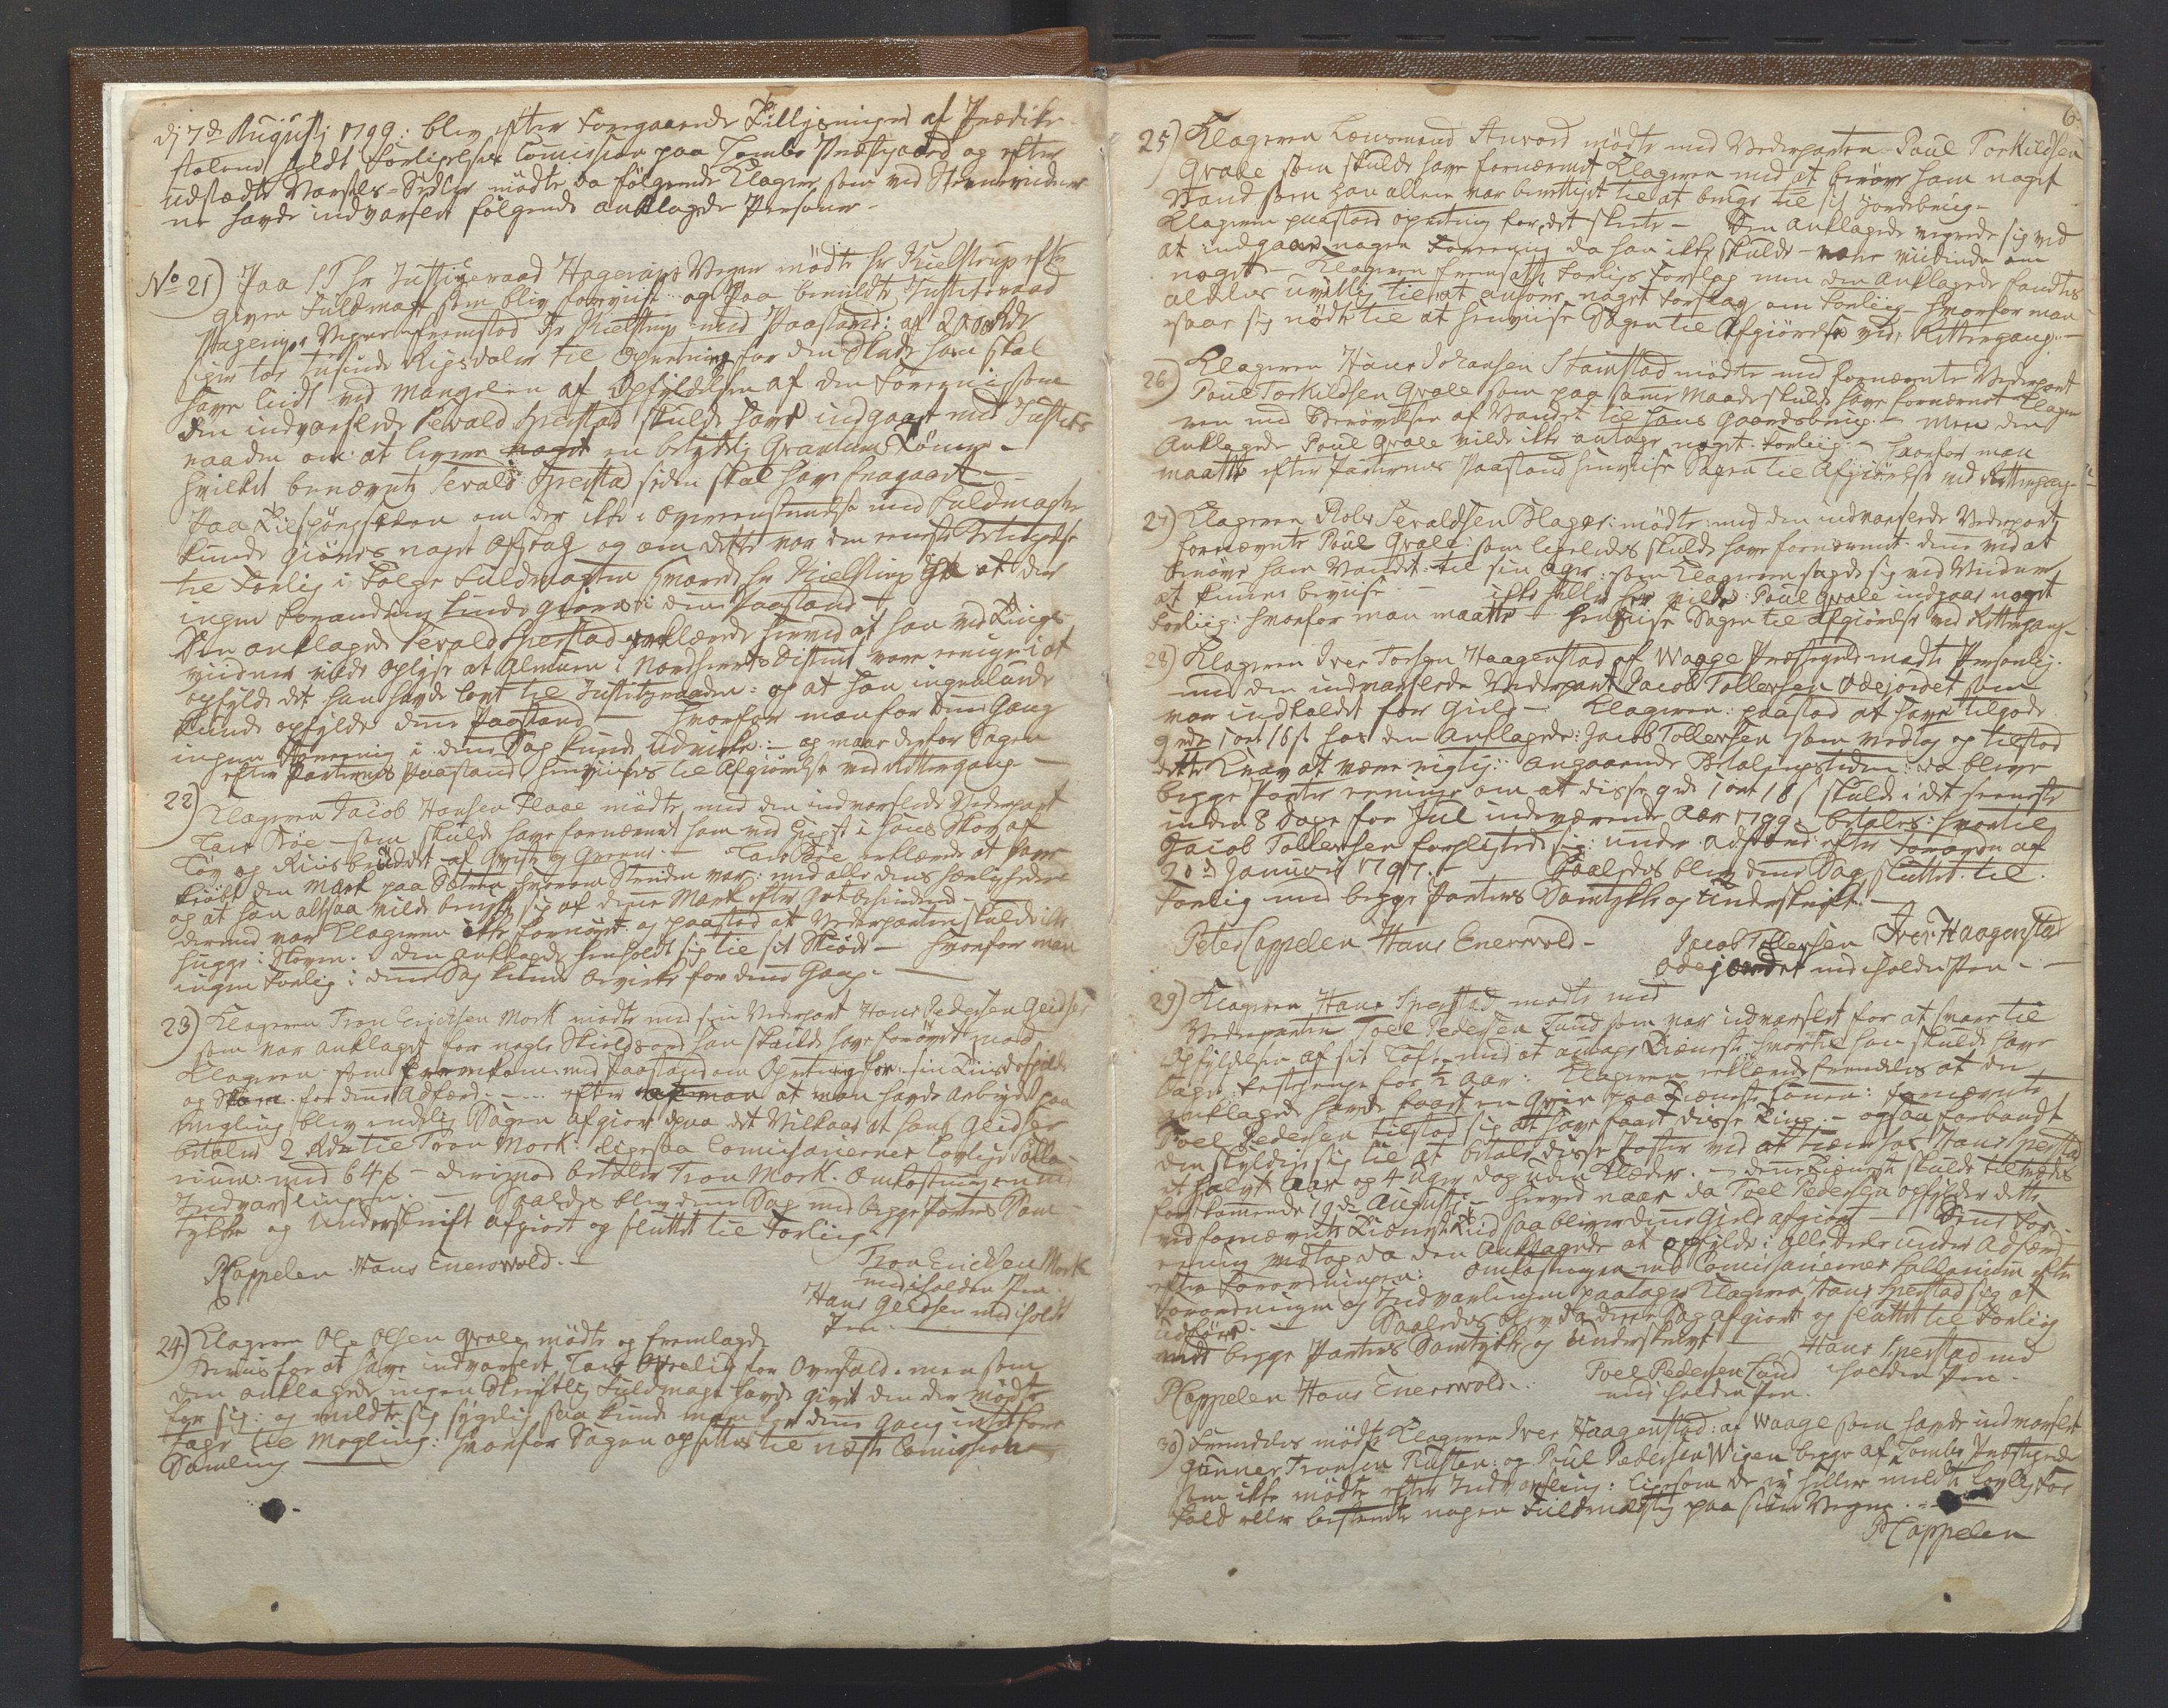 Dj 7de Augustj 1799: blev efter foregaaende Tillysninger af Prædike-
stolene holdt Forligelses Comission paa Lombs Præstgaard og efter
udstædte Varsels-Sedler mødte da følgende Klagere, som ved Stevnevidner-
ne havde indvarslet følgende anklagede Personer.-
No 21) Paa Hr Justiceraad Hagerups Vegne mødte Hr Kielstrup efter
given Fuldmagt som blev foreviist og paa bemeldte Justitsraad
Hagerups Vegne fremstod Hr Kielstrup med Paastand: af 2000 Rdr
siger toe tusinde Rigsdaler til Opretning for den Skade han skal
have lidt ved Mangelen af Opfyldelsen af den Forening som
den indvarslede Sevald Sperstad skulde have indgaaet med Justits-
raaden om at levere noget en betydelig Qvantum Tømmer -
hvilket benævnte Sevald Sperstad siden skal have fragaaet -
Paa Tilspørgselen om der ikke i overeensstemmelse med Fuldmagten
kunde giøres noget Afslag og om dette var den eneste Betingelse
til Forlig i Følge Fuldmagten svarede Hr Kielstrup at der
ingen Forandring kunde giøres i denne Paastand -
Den anklagede Sevald Sperstad erklærede herved at han ved Tings-
vidner vilde oplyse at Almuen i Nordherreds District vare eenige i at
opfylde det han havde lovt til Justitzraaden: og at han ingenlunde
kunde opfylde denne Paastand - hvorfor man for denne Gang
ingen Forening i denne Sag kunde udvirke: - og maae derfor Sagen
efter Parternes Paastand henviises til Afgiørelse ved Rettergang -
22) Klageren Jacob Hansen Flaae mødte med den indvarslede Vederpart
Lars Bøe - som skulde have fornærmet ham ved Hugst i hans Skov af
Løv og Riis af Qviste og Greene. - Lars Bøe erklærede at have
kiøbt den Mark paa Sætren hvorom Striden var: med alle dens herligheder
og at han altsaa vilde benytte sig af denne Mark efter Godtbefindende -
dermed var Klageren ikke fornøiet og paastod at Vederparten skulde ikke
hugge i Skoven. den anklagede henholdt sig til sit Skiøde - hvorfor man
ingen Forlig i denne Sag kunde bevirke for denne Gang. -
23) Klageren Tron Erichsen Mork mødte med sin Vederpart Hans Pedersen Geidser
som var anklaget for nogle Skieldsord han skulde have brugt mod
Klageren som fremkom med Paastand om Opretning for sin Tiids Spilde
og for denne Adfærd. - efter af man at man havde arbeidet paa
Megling blev endelig Sagen afgiort paa det Vilkaar at Hans Geidser
betaler 2 Rdr til Tron Mork: ligesaa Comissairernes lovlige Salla-
rium: med 64 s - derimod betaler Tron Mork Omkostningen med
Indvarslingen. - saaledes blev denne Sag med begge Parters Sam-
tykke og Underskrift afgiort og sluttet til Forliig. -
PCappelen Hans Enersvold.-
Tron Erichsen Mork
med iholden Pen.
Hans Geidser med iholdt
Pen.
24) Klageren Ole Olsen Qvale mødte og fremlagde
Beviis for at have indvarslet Lars for Overfald. men som
den anklagede ingen skriftlig Fuldmagt havde givet den der mødte
for sig: og meldte sig sygelig saa kunde man for denne Gang intet fore-
tage til Megling: hvorfor Sagen opsættes til næste Comissions
Samling
6.
25) Klageren Lensmand Anvord mødte med Vederparten Paul Torkildsen
Qvale som skulde have fornærmet Klageren med at berøve ham noget
Vand som han allene var berettiget til at bruge til sit Jordebrug -
Klageren paastod opretning for det skeete - Den anklagede vegrede sig ved
at indgaae nogen Forening da han ikke skulde - være vidende om
noget - Klageren fremsatte Forligs Forslag men den Anklagede fandtes
aldeles uvillig til at anhøre noget Forslag om Forliig - hvorfor man
saae sig nødt til at henviise Sagen til Afgiørelse ved Rettergang: -
26) Klageren Hans Johansen Stamstad mødte med fornævnte Vederpart
Paul Torkildsen Qvale som paa samme Maade skulde have fornærmet Klage-
ren med Berøvelsen af Vandet til hans Gaardsbrug. - men den
Anklagede Paul Qvale vilde ikke antage noget Forliig. - hvorfor man
maatte efter Parternes Paastand henviise Sagen til Afgiørelse ved Rettergang.
27) Klageren Rolv Sevaldsen Flager: mødte med den indvarslede Vederpart
fornævnte Paul Qvale: som ligeledes skulde have fornærmet denne ved at
berøve ham Vandet: til sin ager: som Klageren sagde sig ved Vidner
at kunne beviise. - ikke heller her vilde: Paul Qvale indgaae noget
Forliig: hvorfor man maatte - henviise Sagen til afgiørelse ved Rettergang -
28) Klageren Iver Torsen Haagenstad af Waage Præstegield mødte Personlig
med den indvarslede Vederpart Jacob Tollevsen Ødejordet som
var indkaldet for Gield - Klageren: paastod at have tilgode
9 rdr 1 ort 16 s. hos den Anklagede: Jacob Tollevsen som vedtog og tilstod
dette Krav at være rigtig: angaaende Betalingstiden: da bleve
begge Parter eenige om at disse 9 rdr 1 ort 16 s skulde i det seeneste
inden 8 Dage før Jul indeværende Aar 1799. betales: hvortil
Jacob Tollevsen forpligtede sig: under adfærd efter Forordn af
20de Januarii 1797. - Saaledes blev denne Sag sluttet til
Forlig med begge Parters Samtykke og Underskrift. -
Peter Cappelen Hans Enersvold -
Jacob Tollevsen Iver Haagenstad
Ødejordet med iholden Pen. -
29) Klageren Hans Sperstad mødte med
Vederparten Joel Pedersen Sund som var indvarslet for at svare til
Opfyldelsen af sit Løfte med at antage Tieneste hvortil han skulde have
taget Festepenge for ½ aar: Klageren erklærede fremdeles at den
anklagede havde faaet en Qvie paa Tieneste Lønnen: fornævnte
Joel Pedersen tilstod sig at have faaet disse Ting. - ogsaa forbandt
den skyldige sig til at betale disse Poster ved at tiene hos Hans Sperstad
et halvt Aar og 4 Uger dog uden Klæder. - denne Tieneste skulde tiltrædes
førstkommende 19de Augusti - herved naar da Joel Pedersen opfylder dette
ved fornævnte Tieneste Tiid saa bliver denne Gield afgiort - Denne For-
ening vedtog da den Anklagede at opfylde i alle Deele under Adfærd
efter Forordningen: Omkostningen med Comissairernes Sallarium efter
Forordningen og Indvarslingen paatager Klageren Hans Sperstad sig at
udføre. - Saaledes blev da denne Sag afgiort og sluttet til Forliig
med begge Parters Samtykke og Underskrivt -
Hans Sperstad med
iholden Pen.
PCappelen Hans Enersvold.
Joel Pedersen Sund
med iholden Pen.
30) Fremdeles mødte Klageren Iver Haagenstad: af Waage som havde indvarslet
Gunner Tronsen Rusten: og Poul Pedersen Wigen begge af Lombs Præstegield
som ikke mødte efter Indvarsling: ligesom de ej heller meldte lovlig For-
fald eller bestemte nogen Fuldmægtig paa sine Vegne. -
PCappelen